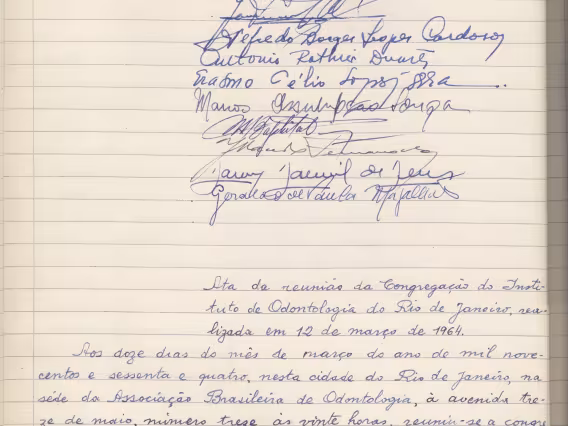 Alfredo Borges Lopes Cardoso
Antonio Rothier Duarte
Erasmo Célio Lopes
Marcos Assumpção Souza
Geraldo de Paula Magalhães
Ata da reunião da Congregação do Insti-
tuto de Odontologia do Rio de Janeiro, rea-
lizada em 12 de março de 1964.
Aos doze dias do mês de março do ano de mil nove-
centos e sessenta e quatro, nesta cidade do Rio de Janeiro, na
séde da Associação Brasileira de Odontologia, à avenida tre-
ze de maio, número treze às vinte horas, reuniu-se a congre